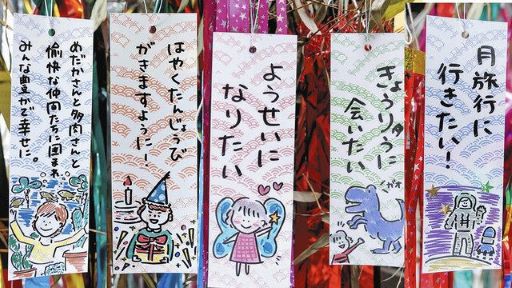 月旅行に
行きたい！
きょうりゅうに
会いたい
ようせいに
なりたい
はやくたんじょうび
がきますように！
めだかさんと多肉さんと
愉快な仲間たちに囲まれ
みんな豊かで幸せに。